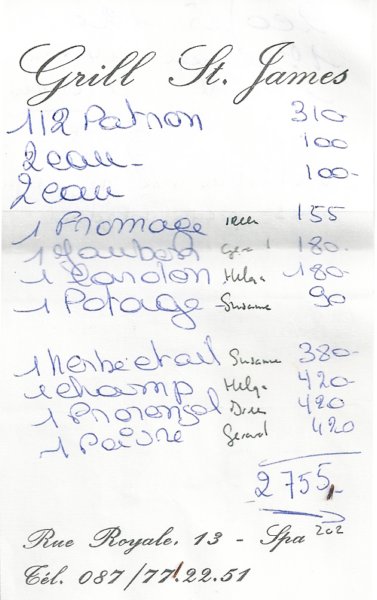 Grill St. James
1/2 Patron 310-
2 eau- 100
2 eau 100-
1 Fromage 155
1 Jambon Gerard 180-
1 Lardon Helga 180-
1 Potage Susanne 90
1 Herbe et ail Susanne 380-
1 champ Helga 420-
1 Provençal Dries 420
1 Poivre Gerard 420
2755,-
202
Rue Royale, 13 - Spa
Tél. 087/77.22.51